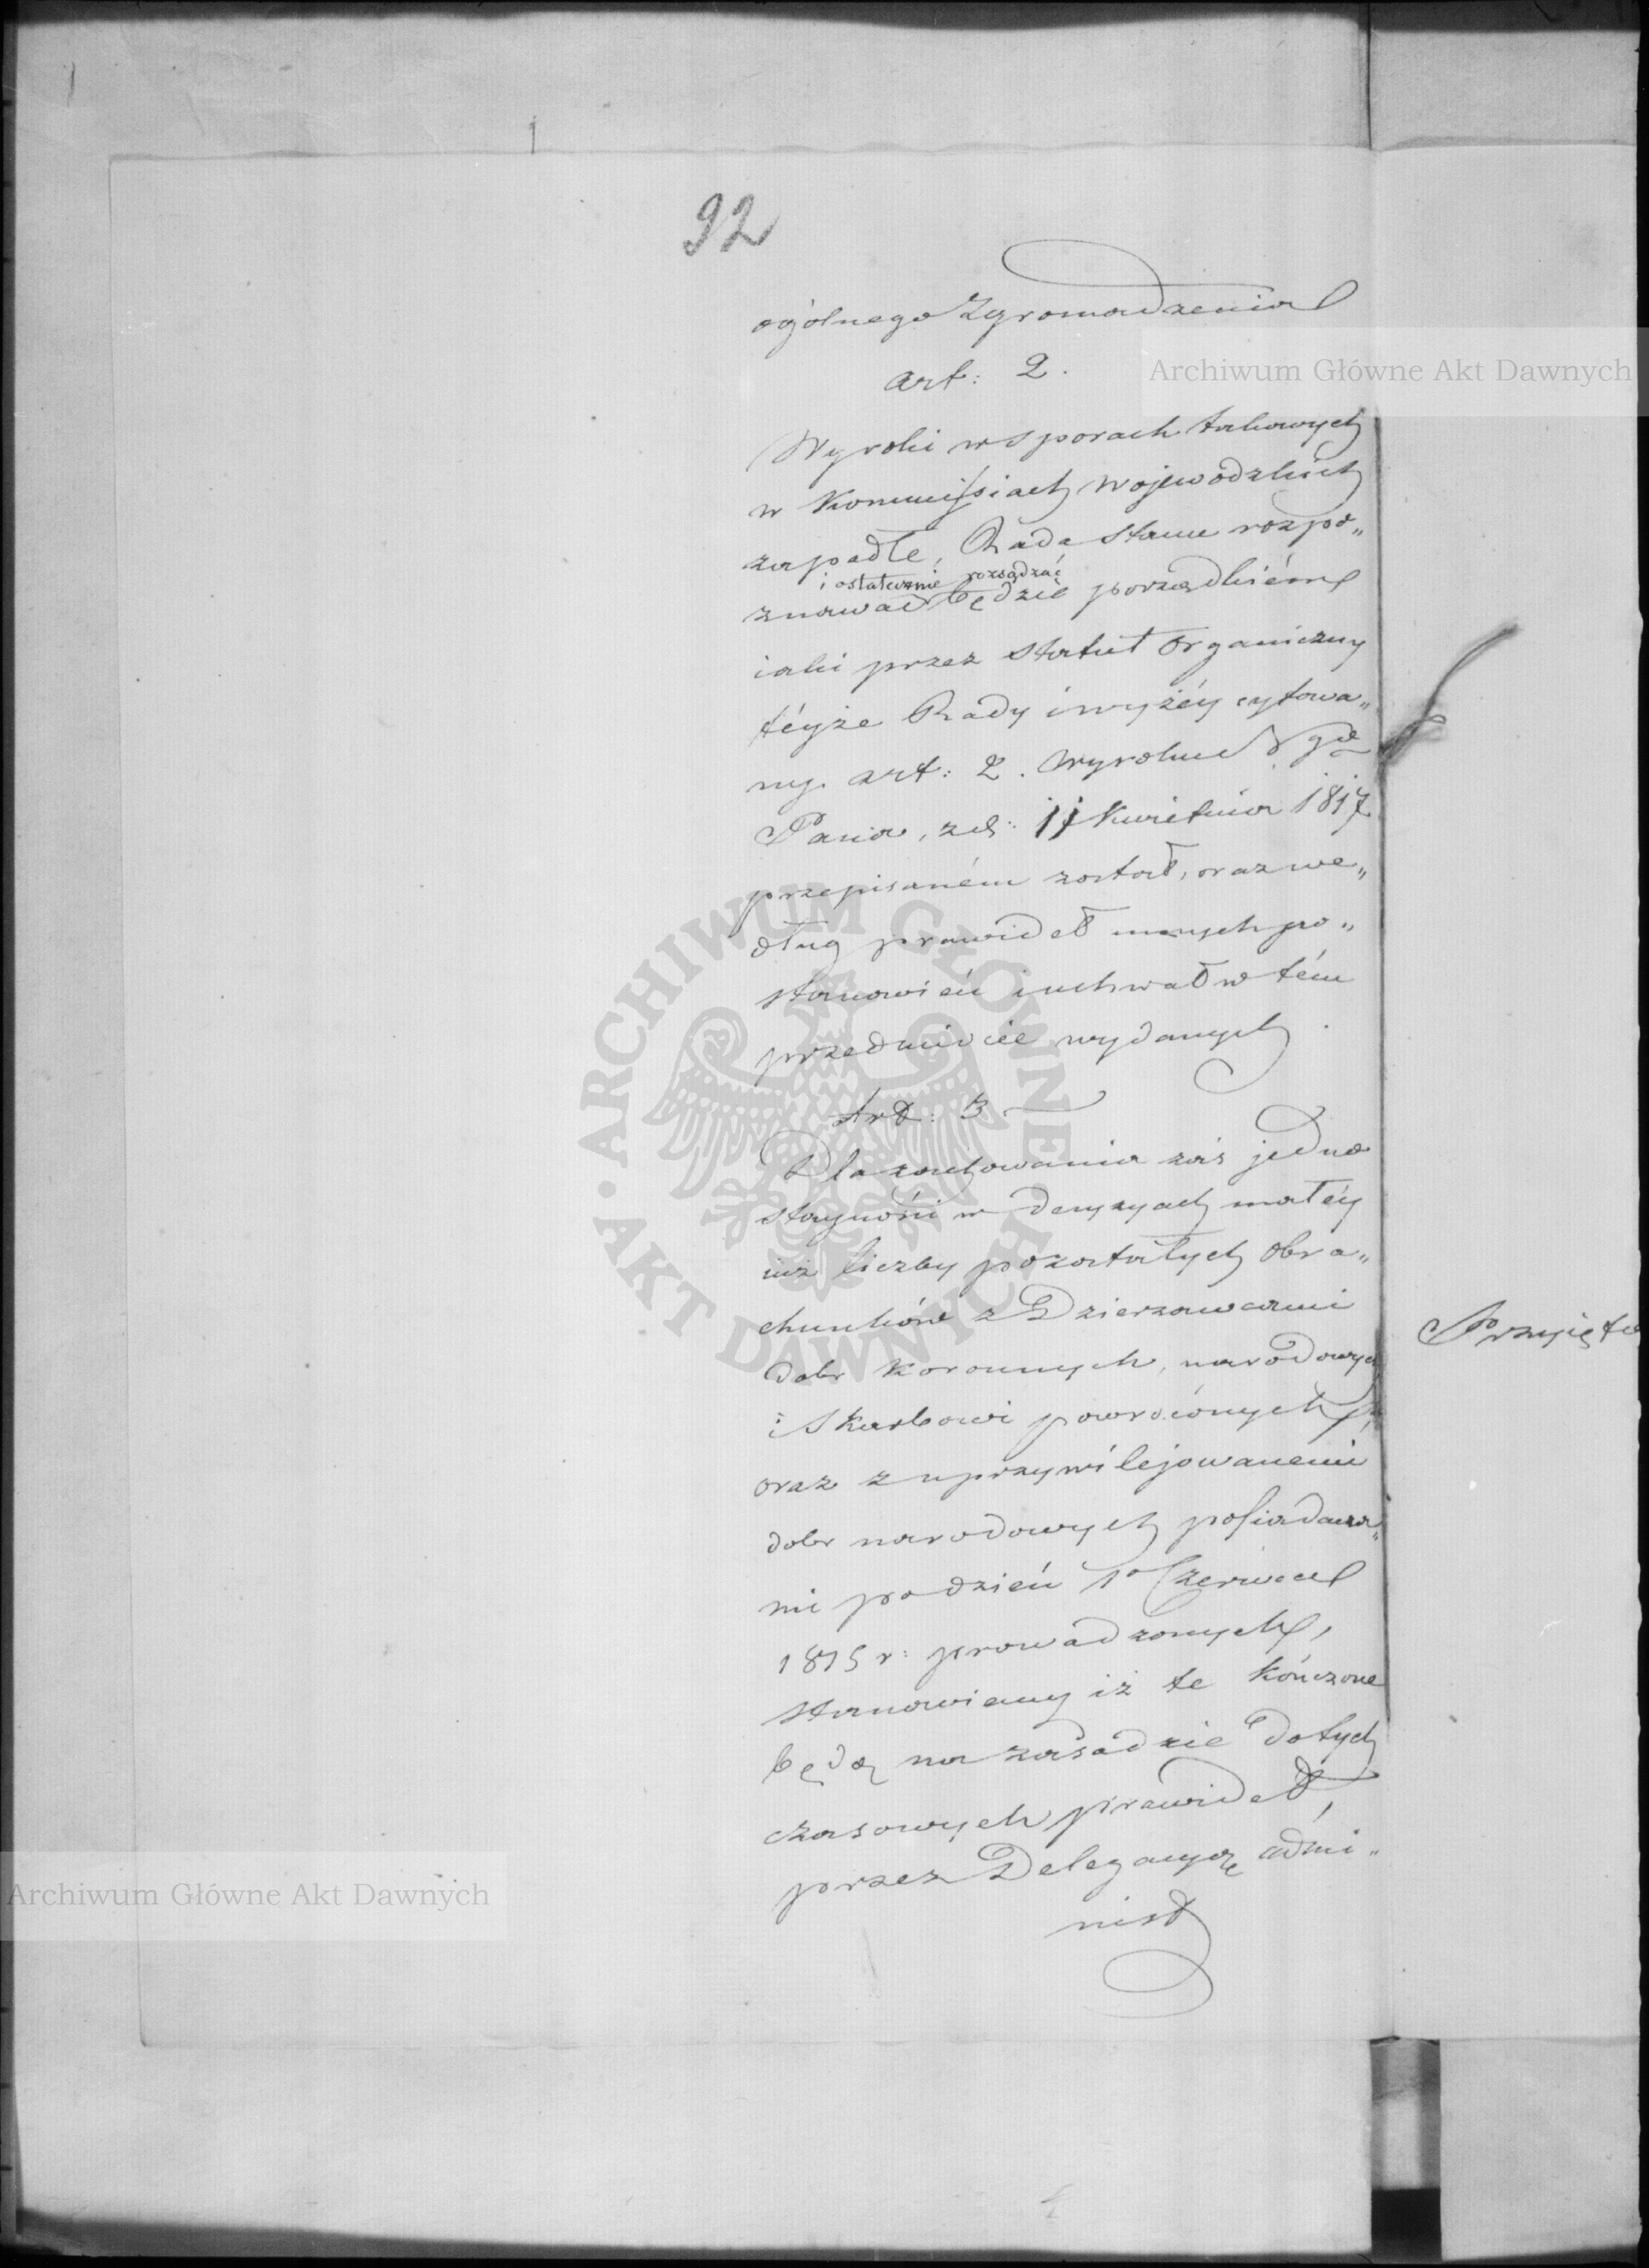 92
ogólnego Zgromadzenia
Art: 2.
Wyroki w sporach takowych
w Kommissiach Wojewodzkich
zapadłe, Rada Stanu rozpo„
i ostatecznie rozsądzać
znawać będzie porządkiém
iaki przez Statut Organiczny
téyże Rady i wyżéy cytowa„
ny art: 2. Wyroku
Pana, zd: 11 Kwietnia 1817
przepisaném został, oraz we„
dług prawideł innych po„
stanowień i uchwał w tém
przedmiocie wydanych.
Art: 3
Dla zachowania zaś jedno
stayności w decyzyach małéy
iuż liczby pozostałych obra„
chunków z Dzierzawcami
dobr Koronnych, narodowych
i Skarbowi powróconych,
oraz z uprzywilejowanemi
dobr narodowych posiadacza„
mi po dzień 1o Czerwca
1815 r: prowadzonych,
stanowiemy iż te kończone
będą na zasadzie dotych
czasowych prawideł,
przez Delegacyą admi„
nist
Przyięto
Archiwum Główne Akt Dawnych
Archiwum Główne Akt Dawnych
ARCHIWUM GŁÓWNE · AKT DAWNYCH ·